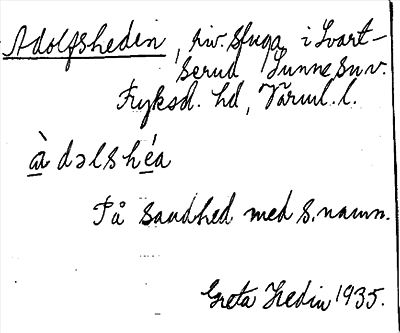 Adolfshedin, riv. stuga i Svart-
serud Sunne sn v.
Fryksd. hd, Värml. l.
àdəlshéa
På sandhed med s. namn.
Greta Hedin 1935.